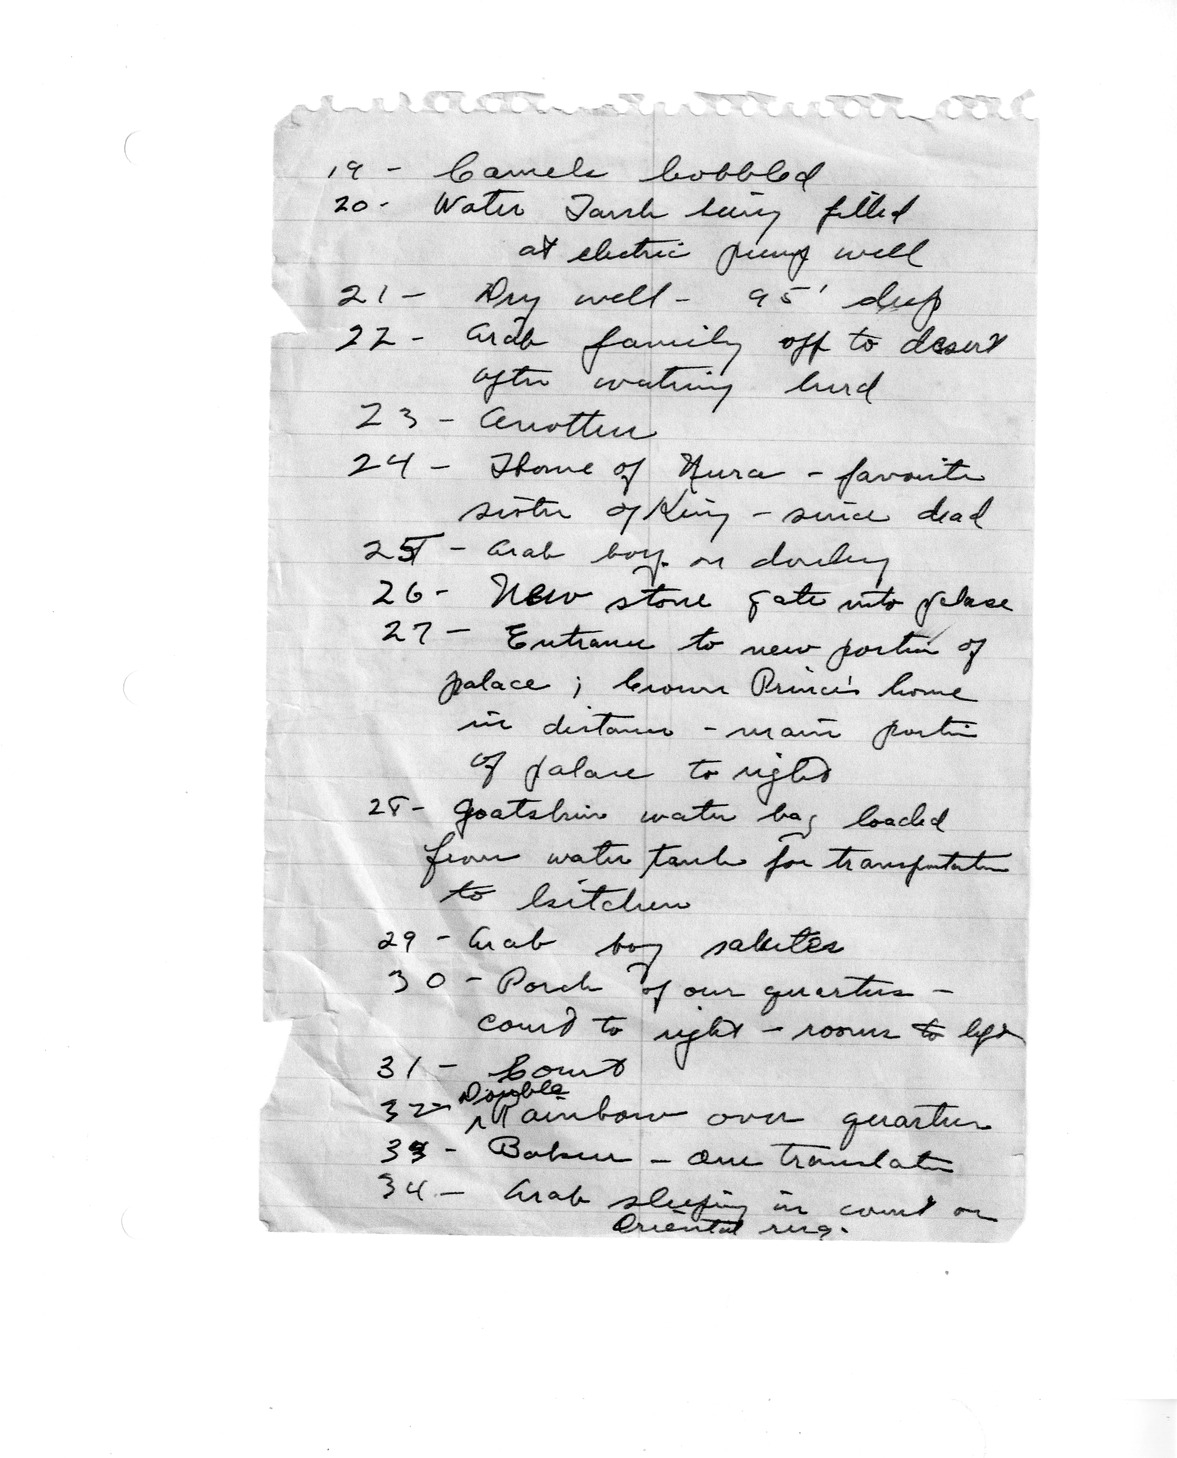 19 - Camels hobbled
20 - Water Tank being filled
at electric pump well
21 - Dry well - 95' deep
22 - Arab family off to desert
after watering herd
23 - Another
24 - Home of Nura - favorite
sister of King - since dead
25 - Arab boy on donkey
26 - New stone gate into palace
27 - Entrance to new portion of
palace; Crown Prince's home
in distance - main portion
of palace to right
28 - Goatskin water bag loaded
from water tank for transportation
to kitchen
29 - Arab boy salutes
30 - Porch of our quarters -
court to right - rooms to left
31 - Court
32 - Double Rainbow over quarters
33 - - our translator
34 - Arab sleeping in court on
Oriental rug.